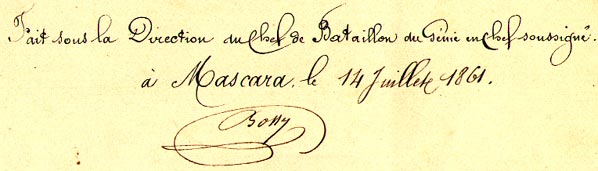 Fait sous la Direction du Chef de Bataillon du Génie en Chef soussigné.
à Mascara, le 14 Juillet 1861.